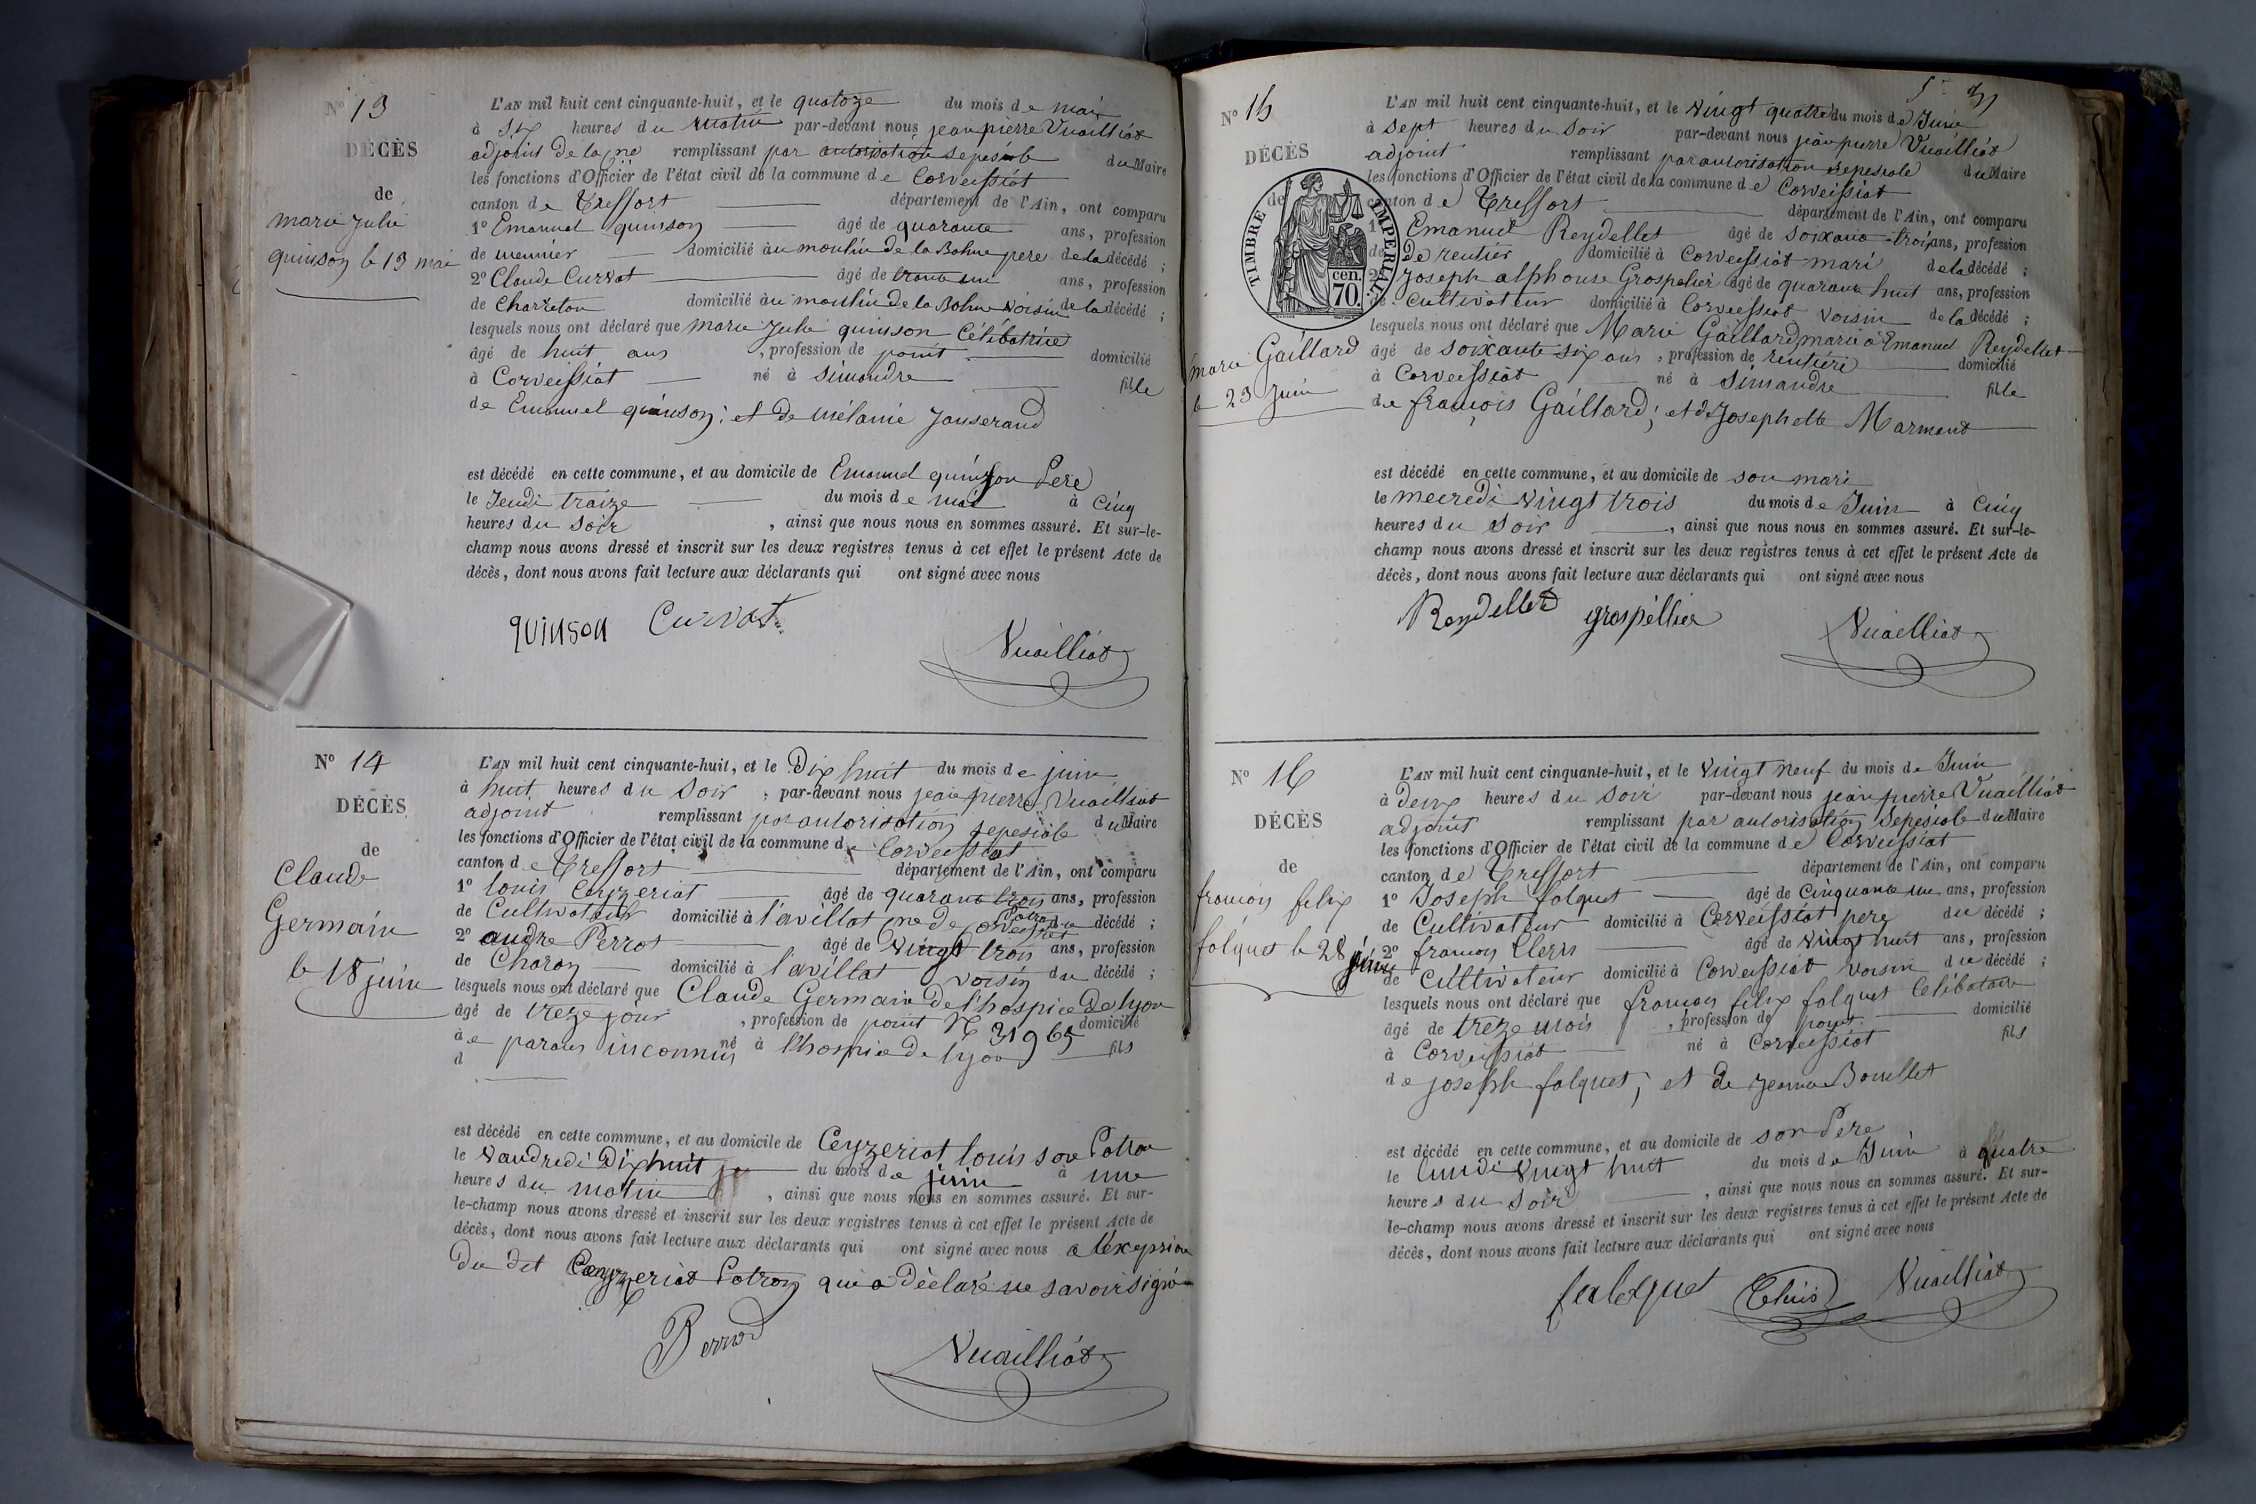 N° 13
DÉCÈS
de
marie julie
quinson le 13 mai
L'AN mil huit cent cinquante-huit, et le quatoze du mois de mai
à six heures du matin par-devant nous jean pierre Vuailliat
adjoint de la ne remplissant par autorisation sepésiale du Maire
les fonctions d'Officier de l'état civil de la commune de Corveissiat
canton de Treffort département de l'Ain, ont comparu
1° Emanuel quinson âgé de quarante ans, profession
de meunier domicilié au moulin de la Bohne pere de la décédé ;
2° Claude Curvat âgé de trante un ans, profession
de Charreton domicilié au moulin de la Bohne voisin de la décédé ;
lesquels nous ont déclaré que marie julie quinson Célibatrice
âgé de huit ans , profession de point domicilié
à Corveissiat né à simandre fille
de Emanuel quinson ; et de mélanie Janserand
est décédé en cette commune, et au domicile de Emanuel quinson Pere
le Jeudi traize du mois de mai à Cinq
heures du soir , ainsi que nous nous en sommes assuré. Et sur-le-
champ nous avons dressé et inscrit sur les deux registres tenus à cet effet le présent Acte de
décès, dont nous avons fait lecture aux déclarants qui ont signé avec nous
quinson Curvat
Vuailliat
N° 14
DÉCÈS
de
Claude
Germain
le 18 juin
L'AN mil huit cent cinquante-huit, et le Dix huit du mois de juin
à huit heures du soir , par-devant nous jean pierre Vuailliat
adjoint remplissant par autorisation sepesiale du Maire
les fonctions d'Officier de l'état civil de la commune de Corveissiat
canton de Treffort département de l'Ain, ont comparu
1° louis Ceyzeriat âgé de quarante trois ans, profession
de Cultivateur domicilié à l'avillat cne de Corveissiat Patron du décédé ;
2° andre Perrot âgé de vingt trois ans, profession
de Charon domicilié à l'avillat voisin du décédé ;
lesquels nous ont déclaré que Claude Germain De l'hospice De lyon
âgé de treze jour , profession de point N° 31965 domicilié
à né à l'hospice De lyon fils
de parans inconnus
est décédé en cette commune, et au domicile de Ceyzeriat louis son Patron
le vandredi Dix huit du mois de juin à une
heures du matin , ainsi que nous nous en sommes assuré. Et sur-
le-champ nous avons dressé et inscrit sur les deux registres tenus à cet effet le présent Acte de
décès, dont nous avons fait lecture aux déclarants qui ont signé avec nous
Du dit Ceyzeriat Patron qui a Déclaré ne savoir signé
Perrot
Vuailliat
N° 15
DÉCÈS
de
marie Gaillard
le 23 juin
TIMBRE IMPERIAL
cen.
70.
L'AN mil huit cent cinquante-huit, et le vingt quatre du mois de Juin
à sept heures du soir par-devant nous jean pierre Vuailliat
adjoint remplissant par autorisation sepesiale du Maire
les fonctions d'Officier de l'état civil de la commune de Corveissiat
canton de Treffort département de l'Ain, ont comparu
1° Emanuel Reydellet âgé de soixante trois ans, profession
de De rentier domicilié à Corveissiat mari de la décédé ;
2° Joseph alphonse Grospelier âgé de quarante huit ans, profession
de Cultivateur domicilié à Corveissiat voisin de la décédé ;
lesquels nous ont déclaré que Marie Gaillard marié à Emanuel Reydellet
âgé de soixante six ans , profession de rentière domicilié
à Corveissiat né à simandre fille
de françois Gaillard ; et d Josephette Marmont
est décédé en cette commune, et au domicile de son mari
le mecredi vingt trois du mois de Juin à Cinq
heures du soir , ainsi que nous nous en sommes assuré. Et sur-le-
champ nous avons dressé et inscrit sur les deux registres tenus à cet effet le présent Acte de
décès, dont nous avons fait lecture aux déclarants qui ont signé avec nous
Reydellet grospellier
Vuailliat
N° 16
DÉCÈS
de
francois felix
falquet le 28 juin
L'AN mil huit cent cinquante-huit, et le vingt neuf du mois de Juin
à deux heures du soir par-devant nous jean pierre Vuailliat
adjoint remplissant par autorisation sepésiale du Maire
les fonctions d'Officier de l'état civil de la commune de Corveissiat
canton de Treffort département de l'Ain, ont comparu
1° Joseph falquet âgé de Cinquante une ans, profession
de Cultivateur domicilié à Corveissiat pere du décédé ;
2° francois âgé de vingt huit ans, profession
de Cultivateur domicilié à Corveissiat voisin du décédé ;
lesquels nous ont déclaré que francois felix falquet Célibataire
âgé de treze mois , profession de point domicilié
à Corveissiat né à Corveissiat fils
de joseph falquet ; et de jeanne Bouillet
est décédé en cette commune, et au domicile de son Pere
le lundi vingt huit du mois de Juin à quatre
heures du soir , ainsi que nous nous en sommes assuré. Et sur-
le-champ nous avons dressé et inscrit sur les deux registres tenus à cet effet le présent Acte de
décès, dont nous avons fait lecture aux déclarants qui ont signé avec nous
falquet Vuailliat